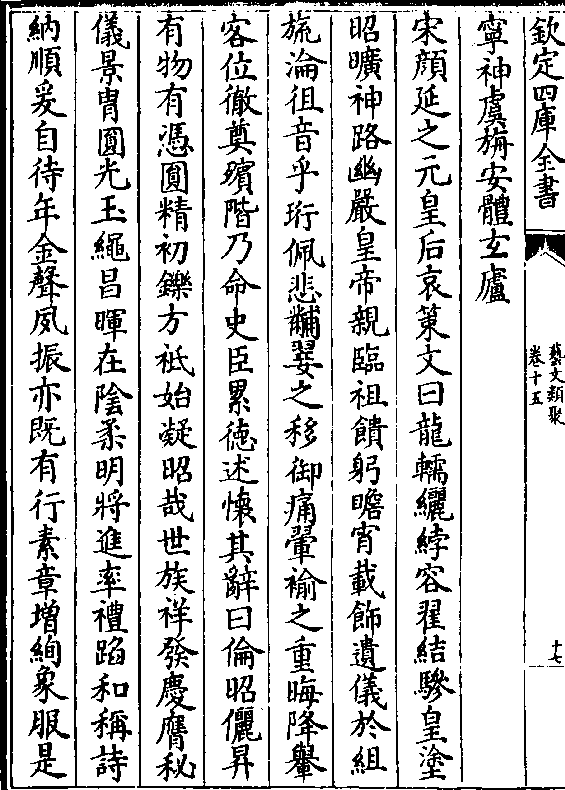 欽定四庫全書
藝文類聚
卷十五
十七
寧神虞旃安體玄廬
宋顔延之元皇后哀策文曰龍輀纚綍容翟結驂皇塗
昭曠神路幽嚴皇帝親臨祖饋躬瞻宵載飾遺儀於組
旒淪徂音乎珩佩悲黼翣之移御痛翬褕之重晦降輿
客位徹奠殯階乃命史臣累徳述懷其辭曰倫昭儷昇
有物有憑圓精初鑠方祇始凝昭哉世族祥發慶膺秘
儀景胄圓光玉繩昌暉在陰柔明將進率禮蹈和稱詩
納順爰自待年金聲夙振亦既有行素章增絢象服是